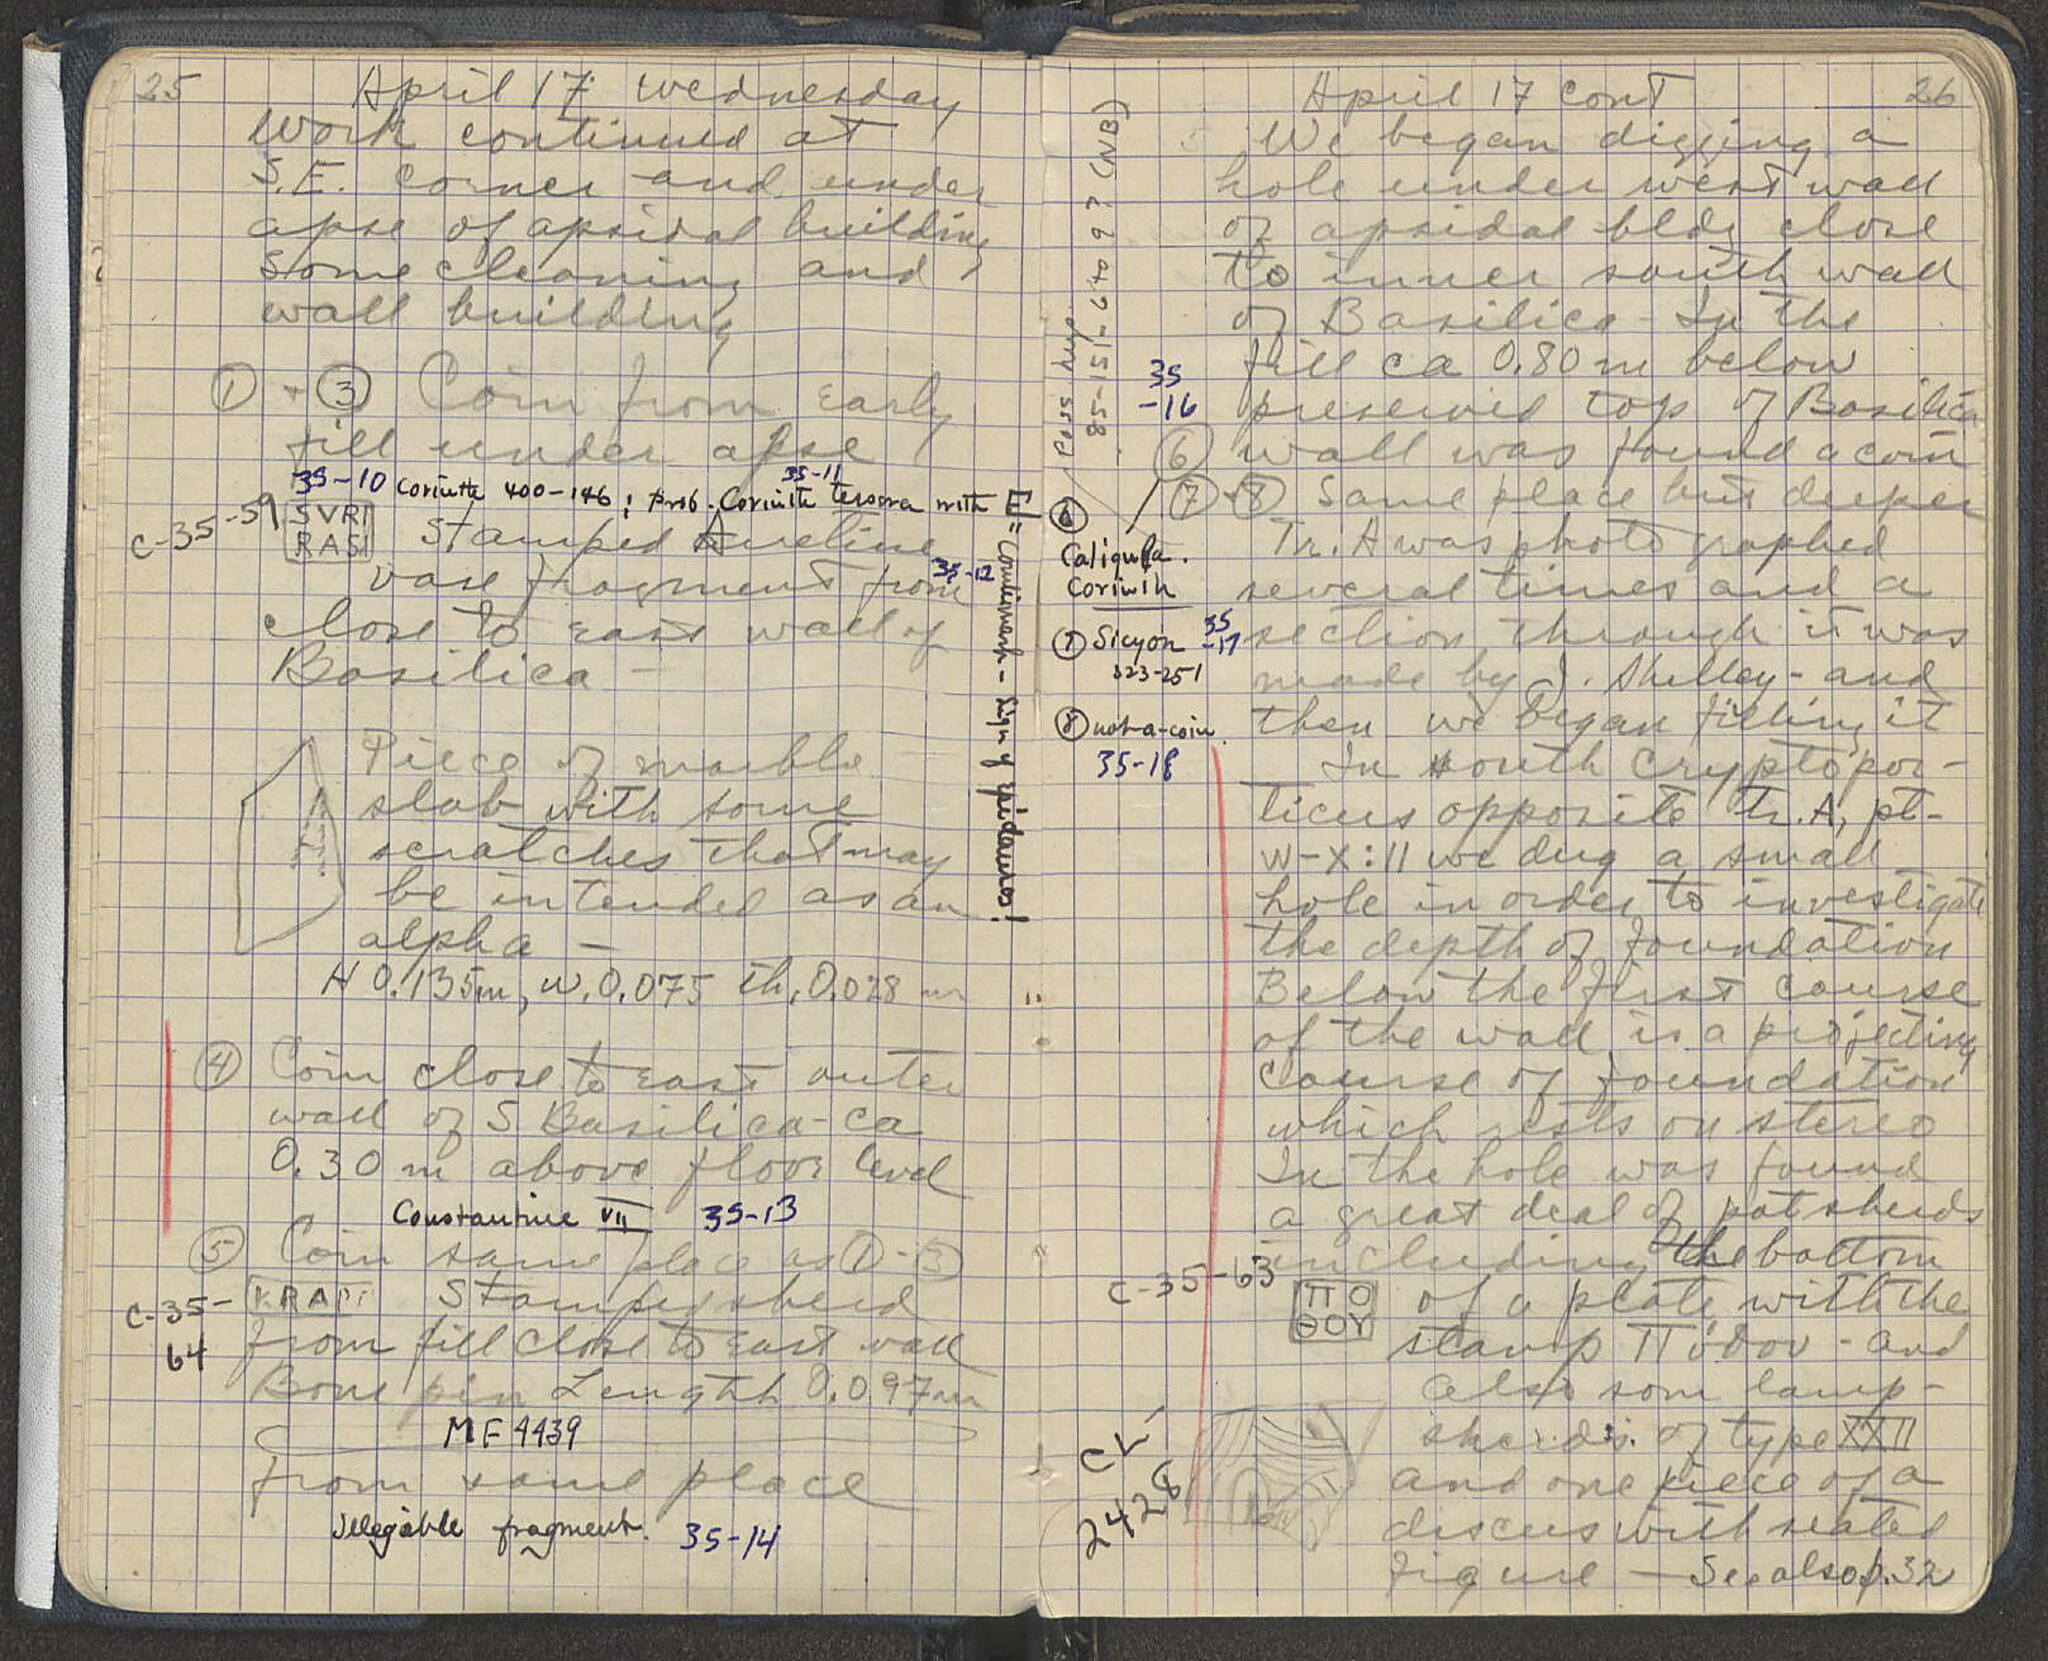 25
April 17 Wednesday
Work continued at
S.E. corner and under
apse of apsidal building
some cleaning and
wall building
① + ③ Coin from early
fill under apse
35-10 Corinth 400-146; prob. Corinth tessera with E = Continuous - sign of Epidauros!
35-11
C-35-59
SVRI
RASI
stamped Arretine
vase fragment from
35-12
close to east wall of
Basilica -
Piece of marble
slab with some
scratches that may
be intended as an
alpha -
H 0.135m, w. 0.075 th. 0.028 m
④ Coin close to east outer
wall of S Basilica - ca
0.30 m above floor level
Constantine VII 35-13
⑤ Coin same place as ①-③
C-35-
64
Stamped sherd
from fill close to east wall
Bone pin Length 0.097m
MF 4439
from same place
illegible fragment. 35-14
April 17 cont
26
We began digging a
hole under west wall
of apsidal bldg close
to inner south wall
of Basilica - In the
fill ca 0.80 m below
preserved top of Basilica
35
-16
⑥ wall was found a coin
⑦ + ⑧ Same place but deeper
Tr. A was photographed
several times and a
section through it was
made by J. Shelley - and
then we began filling it
In south Cryptopor-
ticus opposite tr. A, pt-
W-X:11 we dug a small
hole in order to investigate
the depth of foundation
Below the first course
of the wall is a projecting
course of foundation
which rests on stereo
In the hole was found
a great deal of potsherds
including the bottom
C-35-63
ΠΟ
ΘΟΥ
of a plate with the
stamp Πόθου - and
also som lamp-
sherds of type XXII
and one piece of a
discus with seated
figure - See also p. 32
CL-
2428
85-151-6 to 9? (NB)
⑥
Caligula.
Corinth
⑦ Sicyon 35
-17
323-251
⑧ not-a-coin
35-18